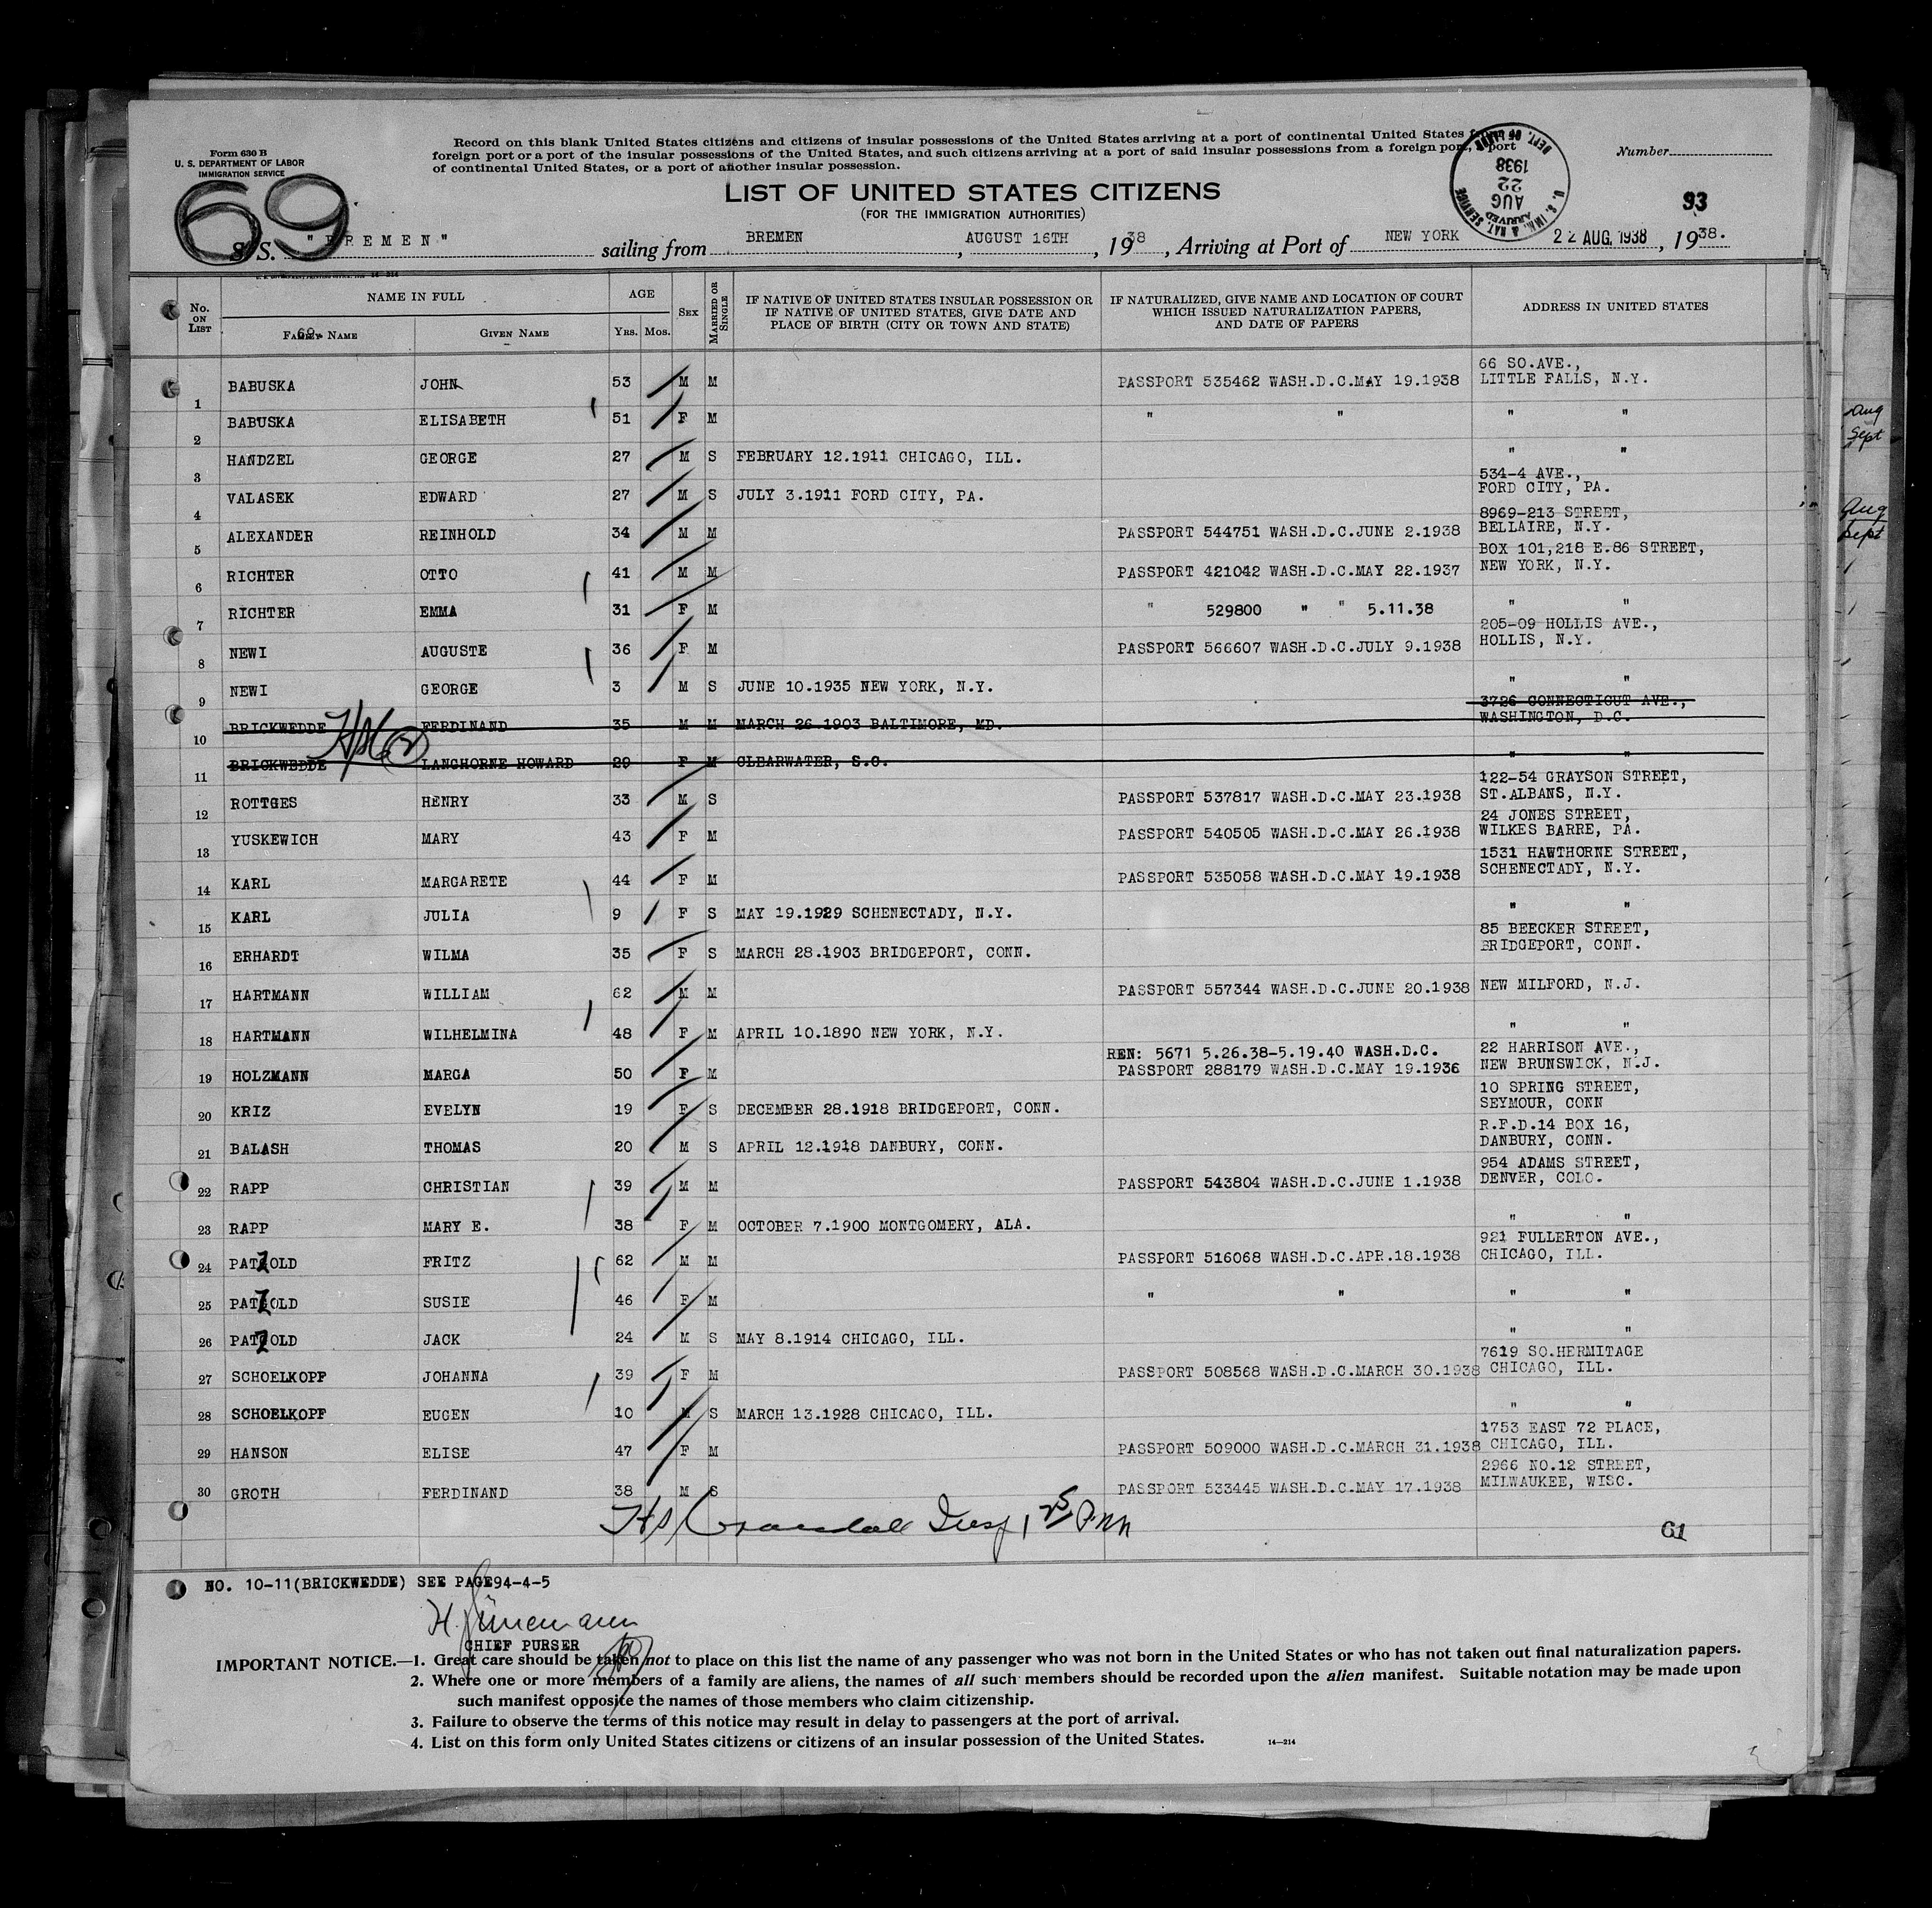 Form 630 B
U. S. DEPARTMENT OF LABOR
IMMIGRATION SERVICE
Record on this blank United States citizens and citizens of insular possessions of the United States arriving at a port of continental United States from a
foreign port or a port of the insular possessions of the United States, and such citizens arriving at a port of said insular possessions from a foreign port, a port
of continental United States, or a port of another insular possession.
Number
69
LIST OF UNITED STATES CITIZENS
(FOR THE IMMIGRATION AUTHORITIES)
U. S. IMM. & NAT. SERVICE ARRIVED AUG 22 1938 DEPT. OF LABOR
93
S. S. "BREMEN" sailing from BREMEN, AUGUST 16TH, 1938, Arriving at Port of NEW YORK 22 AUG. 1938, 1938.
No. ON LIST NAME IN FULL AGE SEX MARRIED OR SINGLE IF NATIVE OF UNITED STATES INSULAR POSSESSION OR IF NATIVE OF UNITED STATES, GIVE DATE AND PLACE OF BIRTH (CITY OR TOWN AND STATE) IF NATURALIZED, GIVE NAME AND LOCATION OF COURT WHICH ISSUED NATURALIZATION PAPERS, AND DATE OF PAPERS ADDRESS IN UNITED STATES
FAMILY NAME GIVEN NAME YRS. MOS.
69.
1 BABUSKA JOHN 53 M M PASSPORT 535462 WASH.D.C.MAY 19.1938 66 SO.AVE., LITTLE FALLS, N.Y.
2 BABUSKA ELISABETH 51 F M " " " "
3 HANDZEL GEORGE 27 M S FEBRUARY 12.1911 CHICAGO, ILL. " "
4 VALASEK EDWARD 27 M S JULY 3.1911 FORD CITY, PA. 534-4 AVE., FORD CITY, PA.
5 ALEXANDER REINHOLD 34 M M PASSPORT 544751 WASH.D.C.JUNE 2.1938 8969-213 STREET, BELLAIRE, N.Y.
6 RICHTER OTTO 41 M M PASSPORT 421042 WASH.D.C.MAY 22.1937 BOX 101,218 E.86 STREET, NEW YORK, N.Y.
7 RICHTER EMMA 31 F M " 529800 " " 5.11.38 " "
8 NEWI AUGUSTE 36 F M PASSPORT 566607 WASH.D.C.JULY 9.1938 205-09 HOLLIS AVE., HOLLIS, N.Y.
9 NEWI GEORGE 3 M S JUNE 10.1935 NEW YORK, N.Y. " "
10 BRICKWEDDE FERDINAND 35 M M MARCH 26 1903 BALTIMORE, MD. 3726 CONNECTICUT AVE., WASHINGTON, D.C.
11 BRICKWEDDE LANGHORNE HOWARD 29 F M CLEARWATER, S.C. " "
12 ROTTGES HENRY 33 M S PASSPORT 537817 WASH.D.C.MAY 23.1938 122-54 GRAYSON STREET, ST.ALBANS, N.Y.
13 YUSKEWICH MARY 43 F M PASSPORT 540505 WASH.D.C.MAY 26.1938 24 JONES STREET, WILKES BARRE, PA.
14 KARL MARGARETE 44 F M PASSPORT 535058 WASH.D.C.MAY 19.1938 1531 HAWTHORNE STREET, SCHENECTADY, N.Y.
15 KARL JULIA 9 F S MAY 19.1929 SCHENECTADY, N.Y. " "
16 ERHARDT WILMA 35 F S MARCH 28.1903 BRIDGEPORT, CONN. 85 BEECKER STREET, BRIDGEPORT, CONN.
17 HARTMANN WILLIAM 62 M M PASSPORT 557344 WASH.D.C.JUNE 20.1938 NEW MILFORD, N.J.
18 HARTMANN WILHELMINA 48 F M APRIL 10.1890 NEW YORK, N.Y. " "
19 HOLZMANN MARGA 50 F M REN: 5671 5.26.38-5.19.40 WASH.D.C. PASSPORT 288179 WASH.D.C.MAY 19.1936 22 HARRISON AVE., NEW BRUNSWICK, N.J.
20 KRIZ EVELYN 19 F S DECEMBER 28.1918 BRIDGEPORT, CONN. 10 SPRING STREET, SEYMOUR, CONN
21 BALASH THOMAS 20 M S APRIL 12.1918 DANBURY, CONN. R.F.D.14 BOX 16, DANBURY, CONN.
22 RAPP CHRISTIAN 39 M M PASSPORT 543804 WASH.D.C.JUNE 1.1938 954 ADAMS STREET, DENVER, COLO.
23 RAPP MARY E. 38 F M OCTOBER 7.1900 MONTGOMERY, ALA. " "
24 PATZOLD FRITZ 62 M M PASSPORT 516068 WASH.D.C.APR.18.1938 921 FULLERTON AVE., CHICAGO, ILL.
25 PATZOLD SUSIE 46 F M " " " "
26 PATZOLD JACK 24 M S MAY 8.1914 CHICAGO, ILL. " "
27 SCHOELKOPF JOHANNA 39 F M PASSPORT 508568 WASH.D.C.MARCH 30.1938 7619 SO.HERMITAGE CHICAGO, ILL.
28 SCHOELKOPF EUGEN 10 M S MARCH 13.1928 CHICAGO, ILL. " "
29 HANSON ELISE 47 F M PASSPORT 509000 WASH.D.C.MARCH 31.1938 1753 EAST 72 PLACE, CHICAGO, ILL.
30 GROTH FERDINAND 38 M S PASSPORT 533445 WASH.D.C.MAY 17.1938 2966 NO.12 STREET, MILWAUKEE, WISC.
61
NO. 10-11(BRICKWEDDE) SEE PAGE94-4-5
CHIEF PURSER
IMPORTANT NOTICE.—1. Great care should be taken not to place on this list the name of any passenger who was not born in the United States or who has not taken out final naturalization papers.
2. Where one or more members of a family are aliens, the names of all such members should be recorded upon the alien manifest. Suitable notation may be made upon
such manifest opposite the names of those members who claim citizenship.
3. Failure to observe the terms of this notice may result in delay to passengers at the port of arrival.
4. List on this form only United States citizens or citizens of an insular possession of the United States.
14—214
Aug
Sept
Aug
Sept